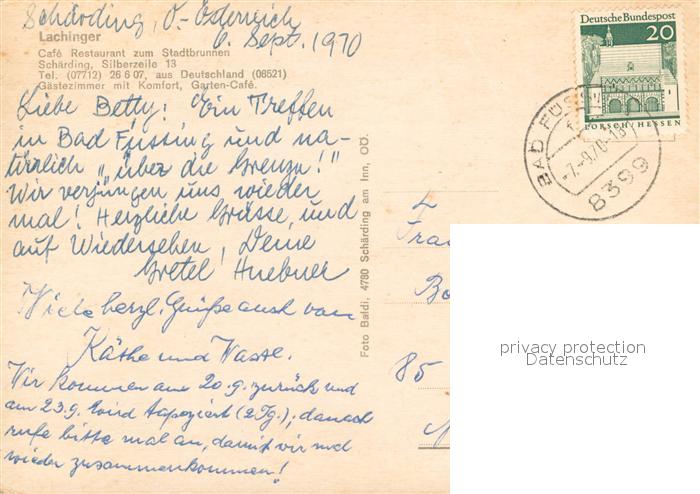 Schärding, O.-Österreich
6. Sept. 1970
Lachinger
Café Restaurant zum Stadtbrunnen
Schärding, Silberzeile 13
Tel. (07712) 26 6 07, aus Deutschland (08521)
Gästezimmer mit Komfort, Garten-Café.
Liebe Betty! Ein Treffen
in Bad Füssing und na-
türlich "über die Grenze!"
Wir verjüngen uns wieder
mal! Herzliche Grüsse, und
auf Wiedersehen, Deine
Gretel Huebner
Viele herzl. Grüße auch von
Käthe und
Wir kommen am 20.9. zurück und
am 23.9. wird tapeziert (2 Tg.); danach
rufe bitte mal an, damit wir mal
wieder zusammenkommen!
Foto Baldi, 4780 Schärding am Inn, OÖ.
Deutsche Bundespost
20
LORSCH/HESSEN
BAD FÜSS
-7.-9.70-18
8399
Fra
Bo
85
privacy protection
Datenschutz